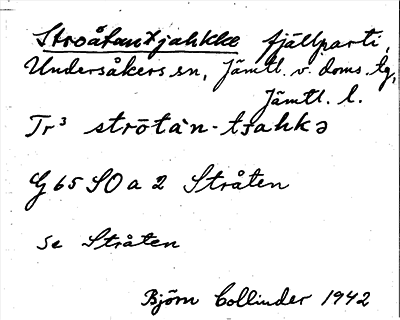 Stroåtantjahkke fjällparti,
Undersåkers sn, Jämtl. v. doms. tg,
Jämtl. l.
Tr³ strōtàn-tsahkə
G 65 SO a 2 Stråten
se Stråten
Björn Collinder 1942